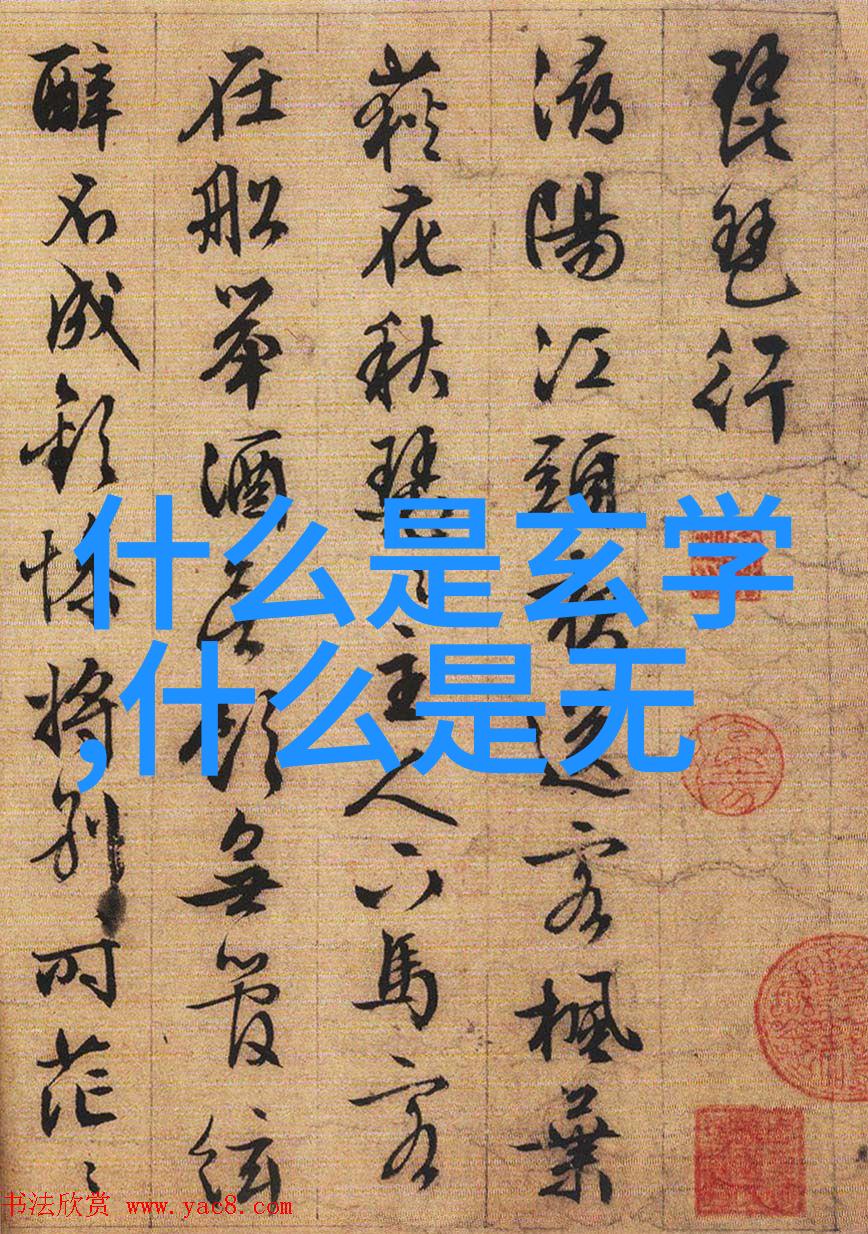 琵琶行
潯陽江頭夜送客楓葉
荻花秋瑟〻主人下馬客
在船舉酒欲飲無管絃
醉不成歡慘將別〻时茫〻
什么是玄学
,什么是无
书法欣赏 www.yac8.com